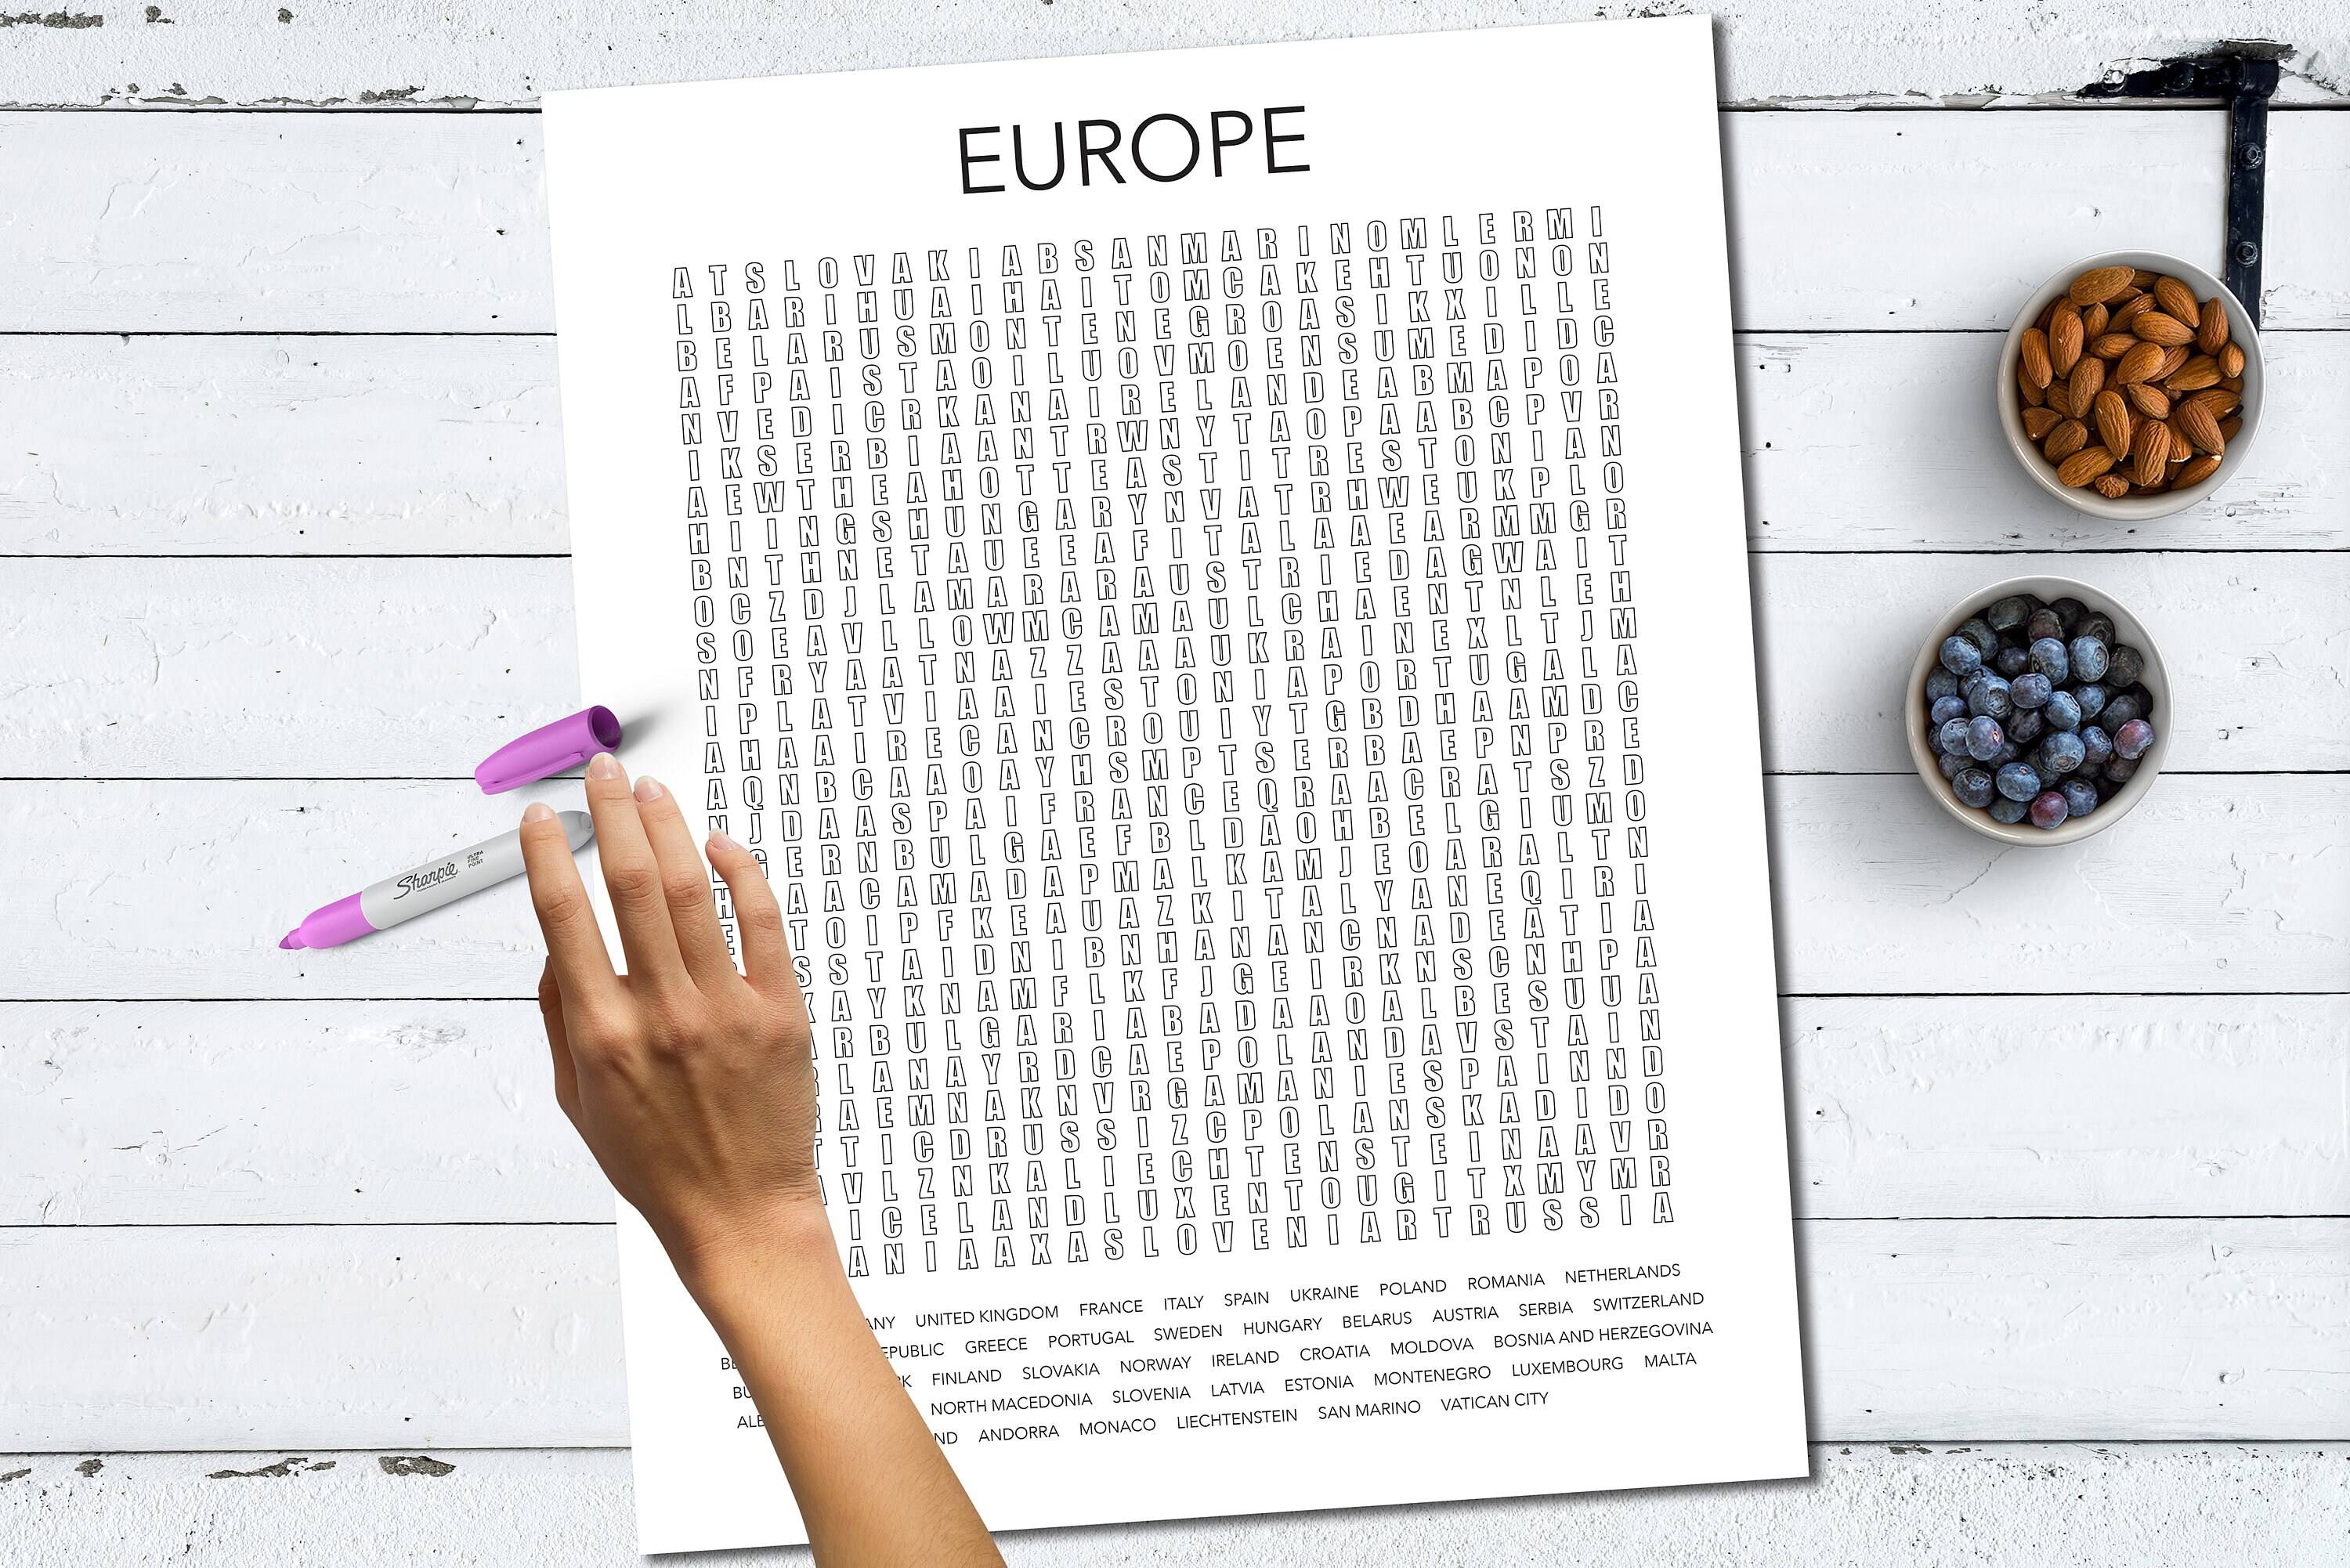 EUROPE
A T S L O V A K I A B S A N M A R I N O M L E R M I
L B A R I H U A I H A I T O M C A K E H T U O N O N
B E L A R U S M O N T E N E G R O A S I K X I L L E
A F P A I S T A O I L U O V M O E N S U M E D I D C
N V E D I C R K A N A I R E L A N D E A B M A P O A
I K S E R B I A A N T R W N Y T A O P A A B C P V R
A E W T H E A H O T T E A S T I T R E S T O N I A N
H I I N G S H U N G A R Y N V A T R H W E U K P L O
B N T H N E T A U E E A F I T A L A A E A R M M G R
O C Z D J L A M A R A R A U S T R I E D A G W A I T
S O E A V L L O W M C A M A U L C H A E N T N L E H
N F R Y A A T N A Z Z A A A U K R A I N E X L T J M
I P L A T V I A A I E S T O N I A P O R T U G A L A
A H A A I R E C A N C R O U I Y T G B D H A A M D C
A Q N B C A A O A Y H S M P T S E R B A E P N P R E
N J D A A S P A I F R A N C E Q R A A C R A T S Z D
G E R N B U L G A E F B L D A O H B E L G I U M O
H A A C A M A D A P M A L K A M J E O A R A L T N
E T O I P F K E A U A Z K I T A L Y A N E Q I R I
S S T A I D N I B N H A N A N C N A D E A T I A
X A Y K N A M F L K F J G E I R K N S C N H P A
R B U L G A R I A B A D A A O A L B E S U U A
R L A N A Y R D C A E P O L A N D A V S T A I N
R A E M N A K N V R G A M A N I E S P A I N N D
T T I C D R U S S I Z C P O L A N S K A D I D O
V L Z N K A L I E C H T E N S T E I N A A V R
I C E L A N D L U X E N T O U G I T X M Y M R
A N I A A X A S L O V E N I A R T R U S S I A
ANY UNITED KINGDOM FRANCE ITALY SPAIN UKRAINE POLAND ROMANIA NETHERLANDS
BE EPUBLIC GREECE PORTUGAL SWEDEN HUNGARY BELARUS AUSTRIA SERBIA SWITZERLAND
BU RK FINLAND SLOVAKIA NORWAY IRELAND CROATIA MOLDOVA BOSNIA AND HERZEGOVINA
ALB NORTH MACEDONIA SLOVENIA LATVIA ESTONIA MONTENEGRO LUXEMBOURG MALTA
ND ANDORRA MONACO LIECHTENSTEIN SAN MARINO VATICAN CITY
Sharpie
ULTRA
FINE
POINT